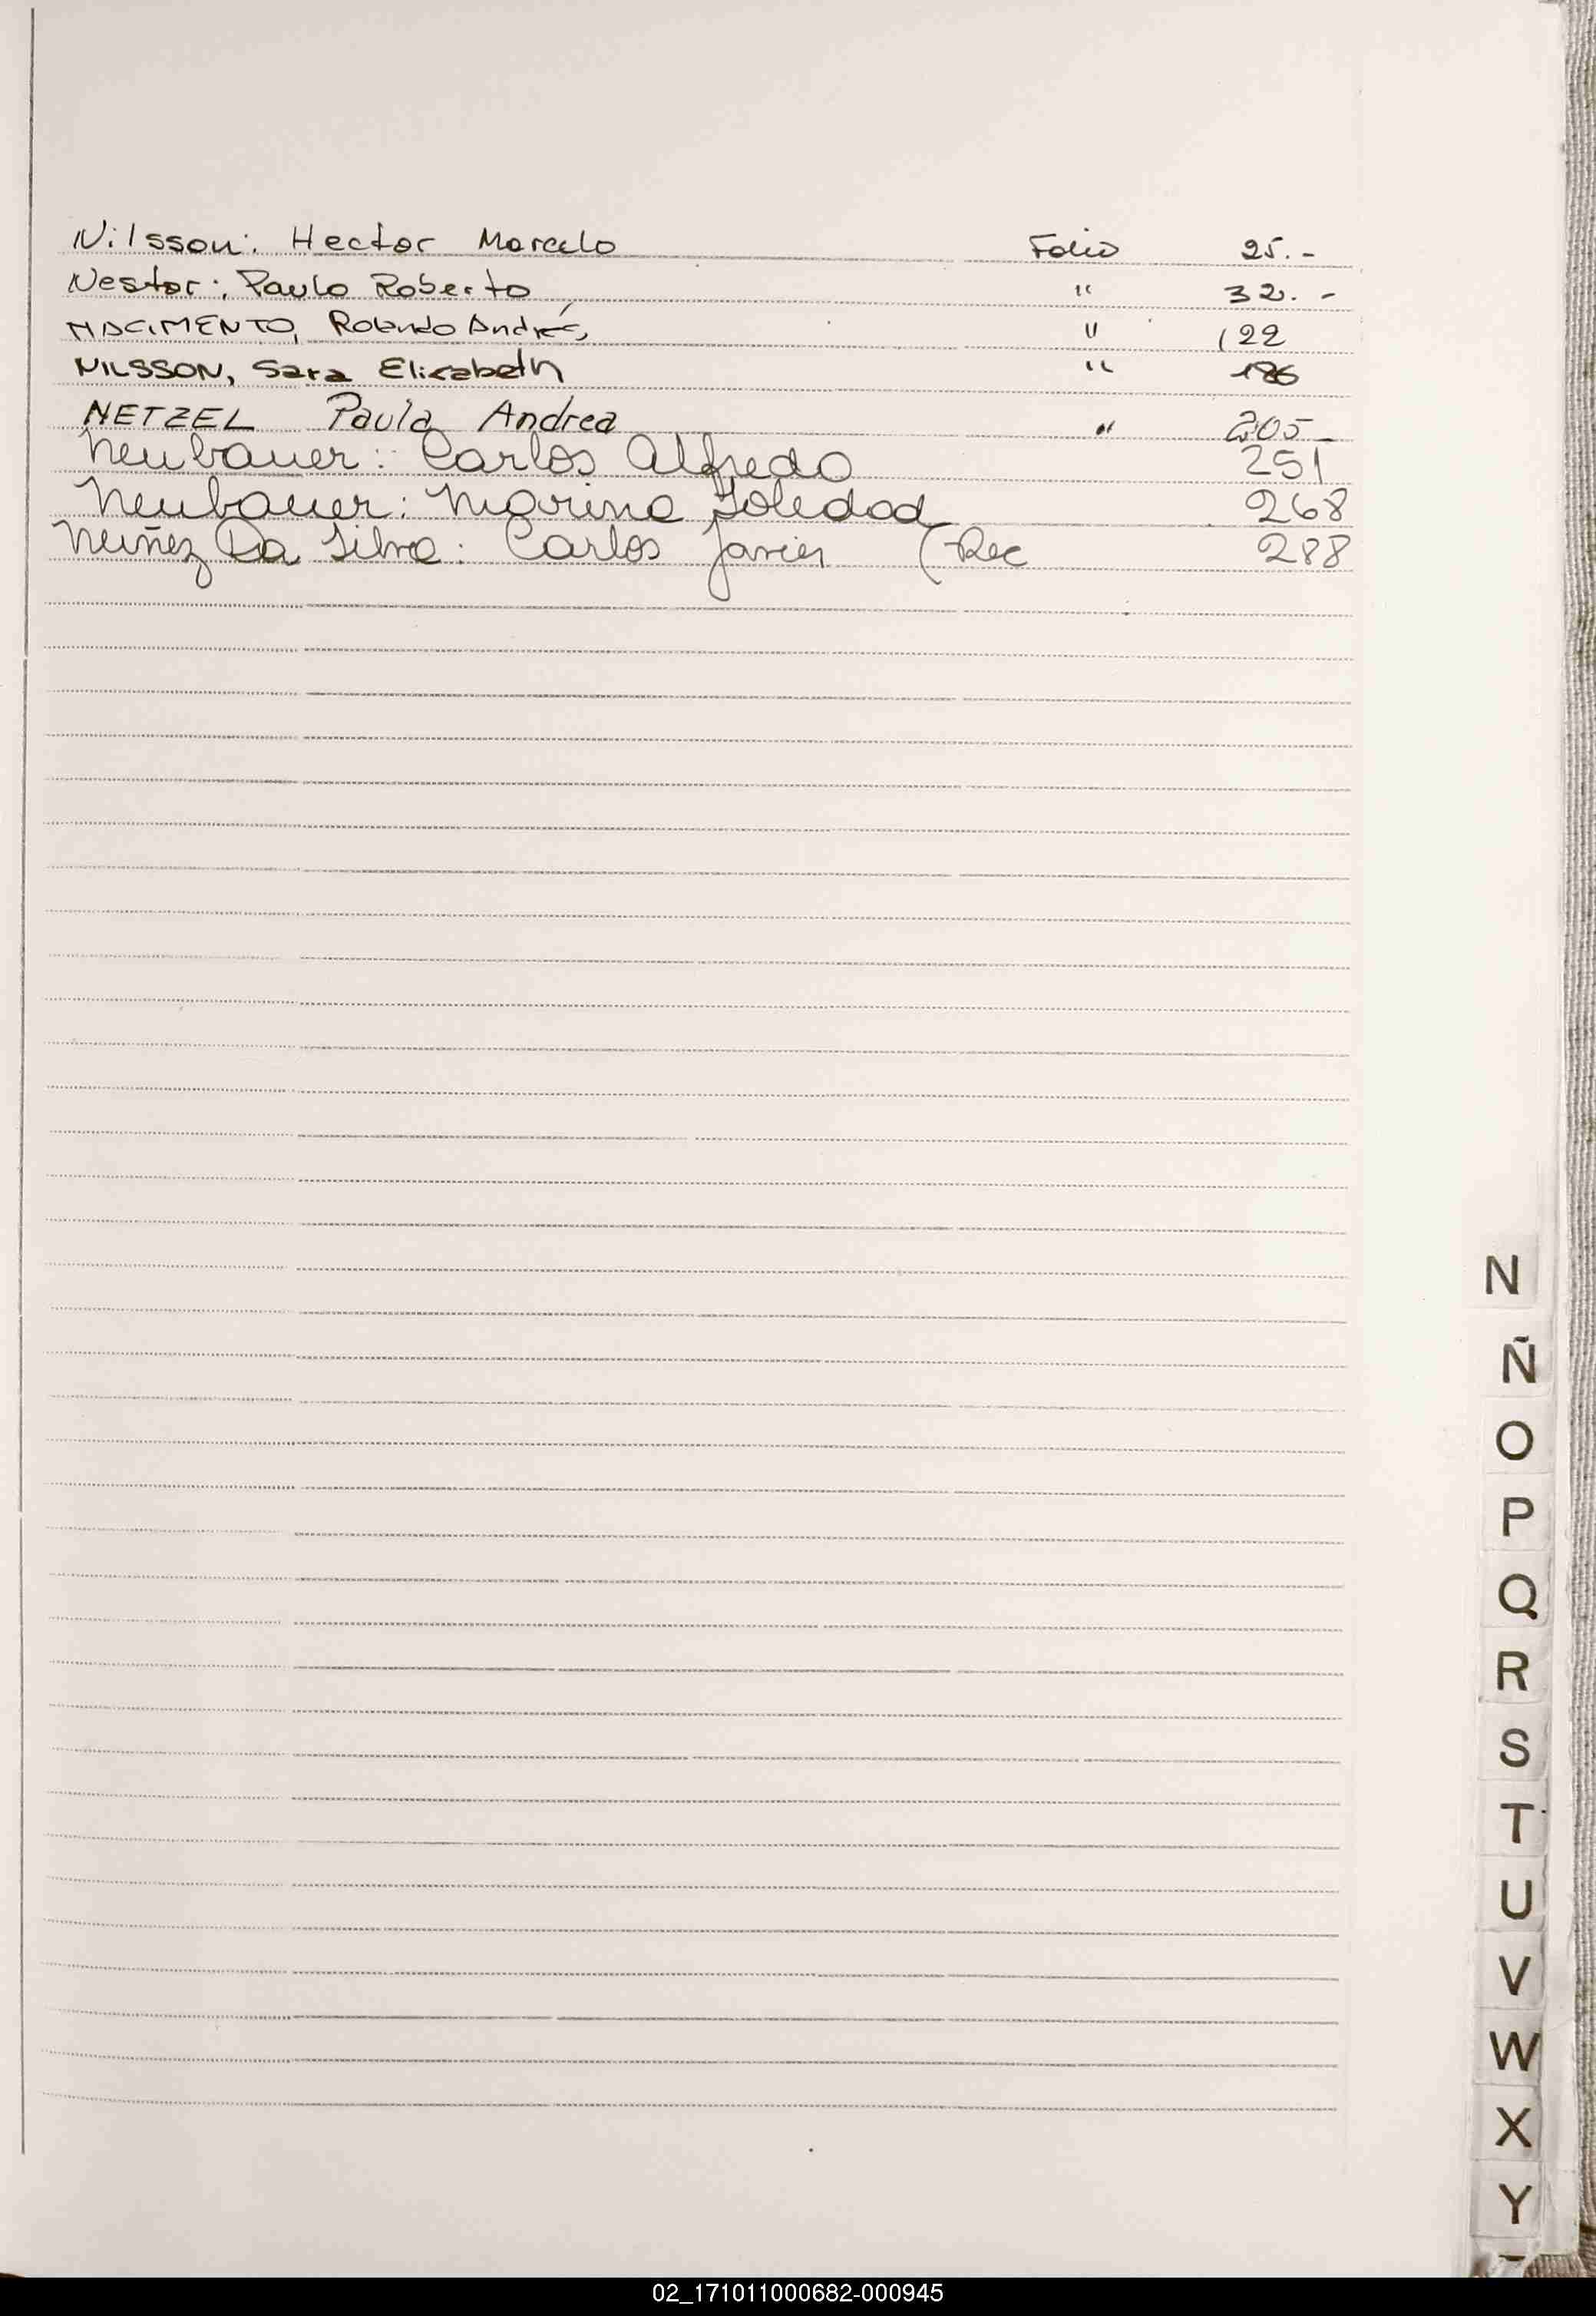 Nilsson: Hector Marcelo Folio 25.-
Nestor: Paulo Roberto " 32.-
NACIMENTO, Rolando Andrés, " 122
NILSSON, Sara Elizabeth " 186
NETZEL Paula Andrea " 205-
Neubauer: Carlos Alfredo 251
Neubauer: Marina Soledad 268
Nuñez Da Silva: Carlos Javier (Rec 288
N
Ñ
O
P
Q
R
S
T
U
V
W
X
Y
02_171011000682-000945